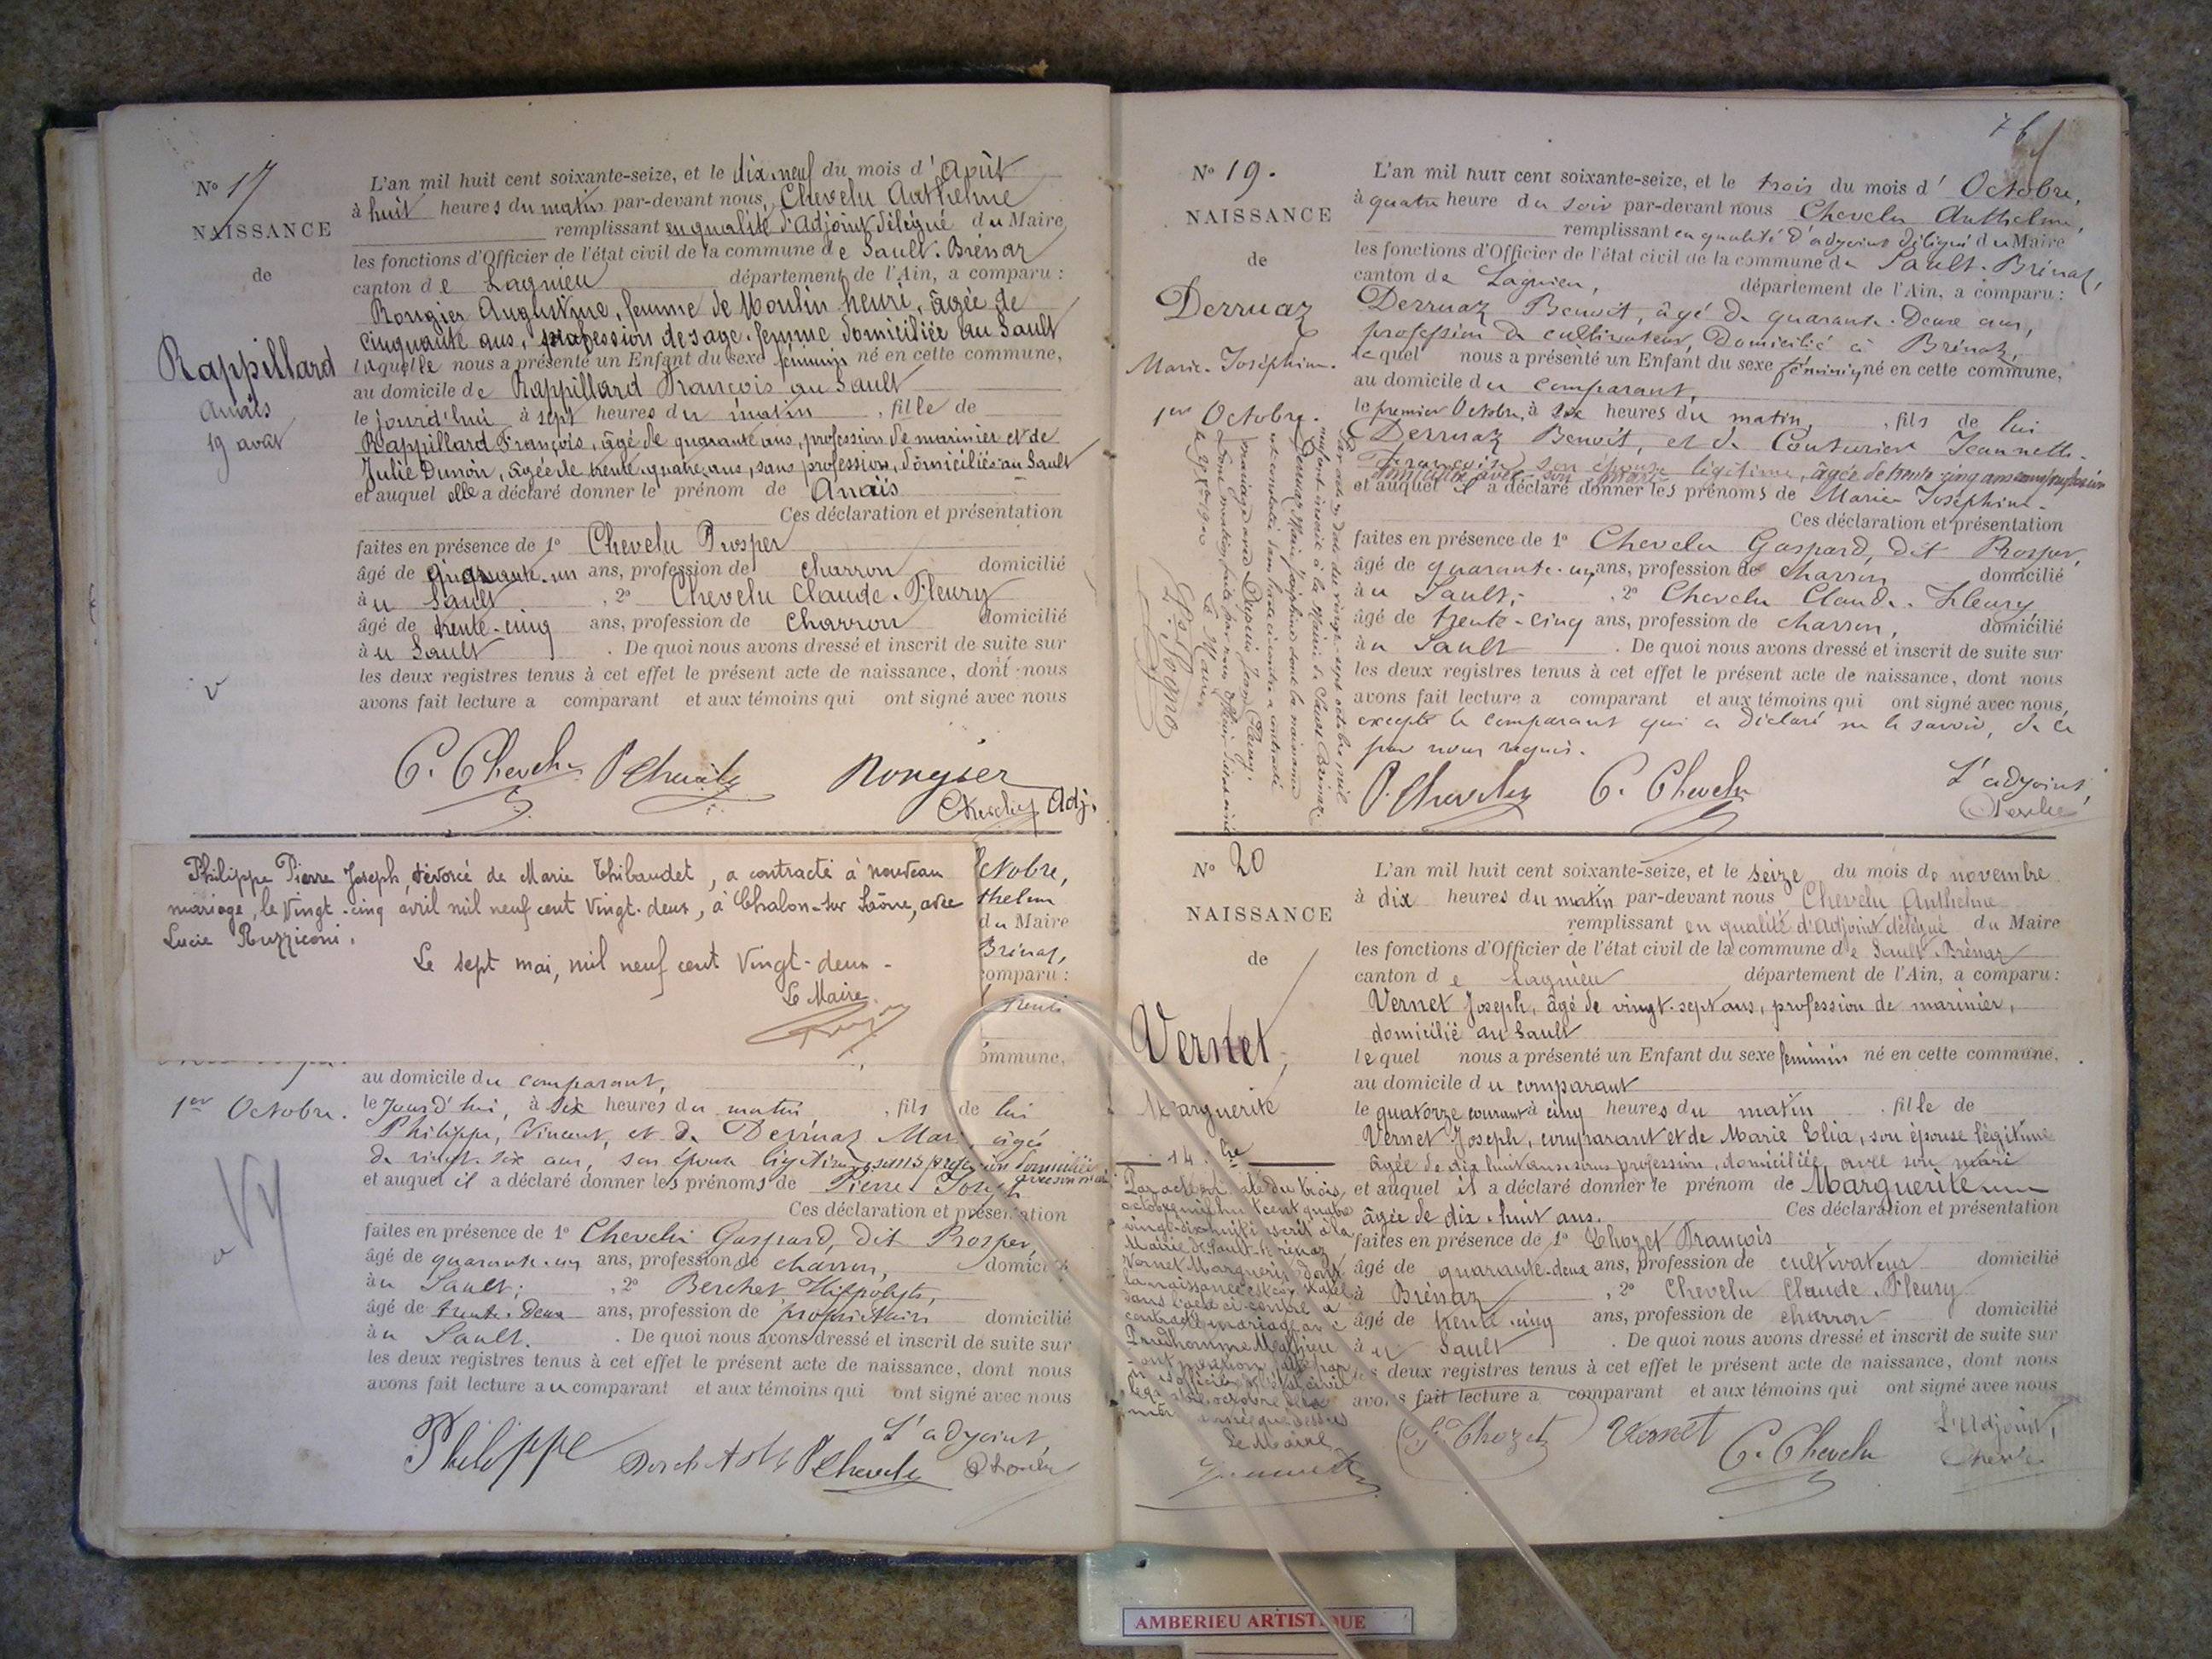 N° 17
NAISSANCE
de
Rappillard
Anaïs
19 août
L'an mil huit cent soixante-seize, et le dix-neuf du mois d'Août
à huit heures du matin par-devant nous, Chevelu Anthelme
remplissant en qualité d'Adjoint délégué du Maire
les fonctions d'Officier de l'état civil de la commune de Sault-Brénaz
canton de Lagnieu département de l'Ain, a comparu :
Rougier Augustine, femme de Moulin henri, âgée de
cinquante ans, profession de sage-femme domiciliée au Sault
laquelle nous a présenté un Enfant du sexe féminin né en cette commune,
au domicile de Rappillard François au Sault
le jourd'hui à sept heures du matin, fille de
Rappillard François, âgé de quarante ans, profession de marinier et de
Julie Dunoir, âgée de trente quatre ans, sans profession, domiciliés au Sault
et auquel elle a déclaré donner le prénom de Anaïs
Ces déclaration et présentation
faites en présence de 1° Chevelu Prosper
âgé de quarante-un ans, profession de charron domicilié
au Sault, 2° Chevelu Claude-Fleury
âgé de trente-cinq ans, profession de charron domicilié
au Sault. De quoi nous avons dressé et inscrit de suite sur
les deux registres tenus à cet effet le présent acte de naissance, dont nous
avons fait lecture a comparant et aux témoins qui ont signé avec nous
C. Chevelu P Chevelu Rougier
Chevelu Adj.
Philippe Pierre Joseph, divorcé de Marie Thibaudet, a contracté à nouveau
mariage, le Vingt-cinq avril mil neuf cent vingt-deux, à Chalon-sur Saône, avec
Lucie Ruzziconi.
Le sept mai, mil neuf cent Vingt-deux -
Le Maire
ctobre,
thelme
du Maire
Brénaz,
omparu :
trente
ommune,
1er Octobre.
au domicile du comparant,
le Jourd'hui, à six heures du matin, fils de lui
Philippe, Vincent, et de Derruaz Marie, âgée
de vingt-six ans, son épouse légitime, sans profession domiciliée
avec son mari
et auquel il a déclaré donner les prénoms de Pierre Joseph
Ces déclaration et présentation
faites en présence de 1° Chevelu Gaspard, dit Prosper,
âgé de quarante-un ans, profession de charron, domicilié
au Sault; 2° Berchet Hippolyte,
âgé de trente-deux ans, profession de propriétaire domicilié
au Sault. De quoi nous avons dressé et inscrit de suite sur
les deux registres tenus à cet effet le présent acte de naissance, dont nous
avons fait lecture au comparant et aux témoins qui ont signé avec nous
L'adjoint,
Philippe P Chevelu Chevelu
76
N° 19.
NAISSANCE
de
Derruaz
Marie-Joséphine.
1er Octobre.
L'an mil huit cent soixante-seize, et le trois du mois d'Octobre,
à quatre heure du soir par-devant nous Chevelu Anthelme,
remplissant en qualité d'adjoint délégué du Maire
les fonctions d'Officier de l'état civil de la commune de Sault-Brénaz,
canton de Lagnieu, département de l'Ain, a comparu :
Derruaz Benoit, âgé de quarante-deux ans,
profession de cultivateur, domicilié à Brénaz,
lequel nous a présenté un Enfant du sexe féminin né en cette commune,
au domicile du comparant,
le premier Octobre, à six heures du matin, fils de lui
Derruaz Benoit, et de Couturier Jeannette-
Françoise, son épouse légitime, âgée de trente-cinq ans
domiciliée avec son mari
et auquel il a déclaré donner les prénoms de Marie Joséphine.
Ces déclaration et présentation
faites en présence de 1° Chevelu Gaspard, dit Prosper,
âgé de quarante-un ans, profession de charron domicilié
au Sault; 2° Chevelu Claude-Fleury,
âgé de trente-cinq ans, profession de charron, domicilié
au Sault. De quoi nous avons dressé et inscrit de suite sur
les deux registres tenus à cet effet le présent acte de naissance, dont nous
avons fait lecture a comparant et aux témoins qui ont signé avec nous,
excepté le comparant qui a déclaré ne le savoir, de ce
par nous requis.
Par acte en date du vingt-sept octobre mil
neuf cent inscrit à la Mairie de Sault-Brénaz,
Derruaz Marie Joséphine dont la naissance
est constatée dans l'acte ci-contre a contracté
mariage avec Dupuis Jean Fleury.
Dont mention faite par nous Officier de l'état civil
Le Maire,
P. Chevelu C. Chevelu
L'adjoint,
Chevelu
N° 20
NAISSANCE
de
Vernet,
Marguerite
14 9bre
L'an mil huit cent soixante-seize, et le seize du mois de novembre
à dix heures du matin par-devant nous Chevelu Anthelme
remplissant en qualité d'Adjoint délégué du Maire
les fonctions d'Officier de l'état civil de la commune de Sault-Brénaz
canton de Lagnieu département de l'Ain, a comparu :
Vernet Joseph, âgé de vingt-sept ans, profession de marinier,
domicilié au Sault
lequel nous a présenté un Enfant du sexe féminin né en cette commune.
au domicile du comparant
le quatorze courant à cinq heures du matin, fille de
Vernet Joseph, comparant et de Marie Elia, son épouse légitime
âgée de dix huit ans sans profession, domiciliée avec son mari
et auquel il a déclaré donner le prénom de Marguerite
âgée de dix-huit ans. Ces déclaration et présentation
faites en présence de 1° Thozet François
âgé de quarante-deux ans, profession de cultivateur domicilié
à Brénaz, 2° Chevelu Claude-Fleury
âgé de trente-cinq ans, profession de charron domicilié
au Sault. De quoi nous avons dressé et inscrit de suite sur
les deux registres tenus à cet effet le présent acte de naissance, dont nous
avons fait lecture a comparant et aux témoins qui ont signé avec nous
Par acte en date du trois
octobre mil huit cent quatre
vingt-dix-huit inscrit à la
Mairie de Sault-Brénaz
Vernet Marguerite dont
la naissance est constatée
dans l'acte ci-contre a
contracté mariage avec
Prudhomme Mathieu
dont mention faite par
nous officier de l'état civil
le quatre octobre de la
même année que dessus
Le Maire
F. Thozet Vernet C. Chevelu
L'Adjoint,
Chevelu
AMBERIEU ARTISTIQUE